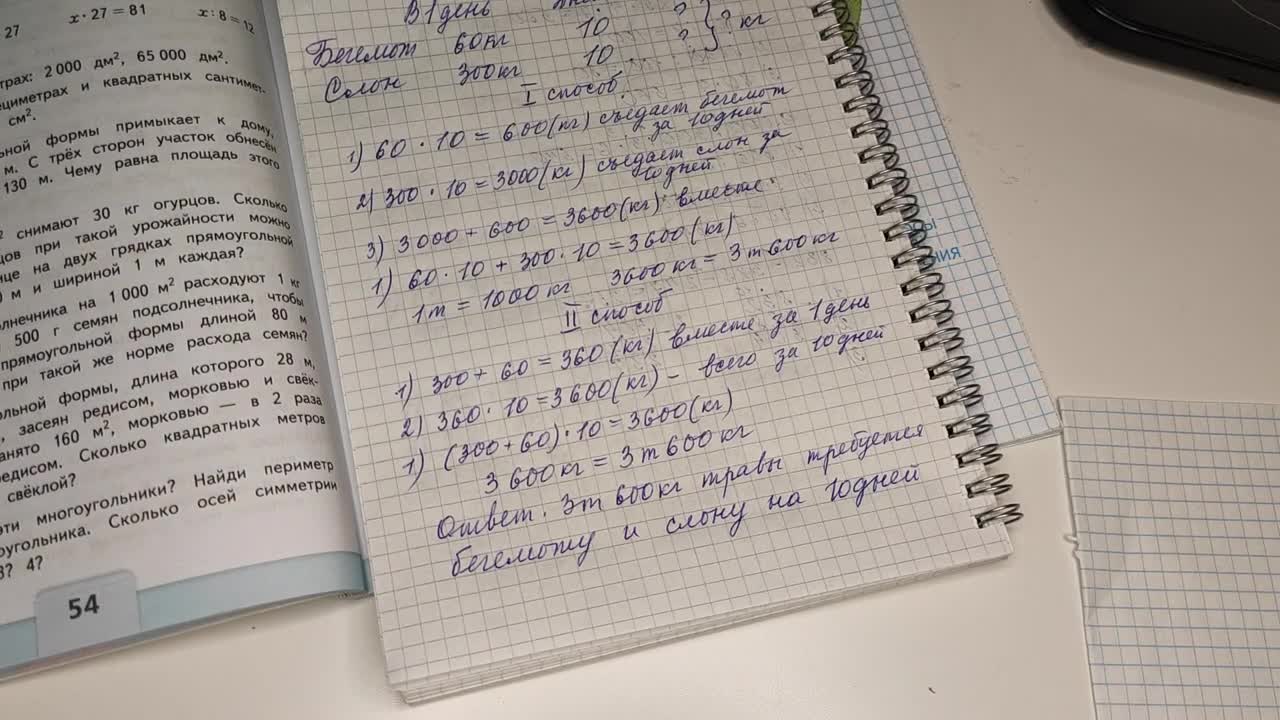 27
x · 27 = 81
x : 8 = 12
трах: 2 000 дм², 65 000 дм².
ециметрах и квадратных сантимет-
см².
ьной формы примыкает к дому,
м. С трёх сторон участок обнесён
130 м. Чему равна площадь этого
² снимают 30 кг огурцов. Сколько
цов при такой урожайности можно
це на двух грядках прямоугольной
м и шириной 1 м каждая?
лнечника на 1 000 м² расходуют 1 кг
500 г семян подсолнечника, чтобы
прямоугольной формы длиной 80 м
при такой же норме расхода семян?
ольной формы, длина которого 28 м,
, засеян редисом, морковью и свёк-
анято 160 м², морковью — в 2 раза
редисом. Сколько квадратных метров
свёклой?
эти многоугольники? Найди периметр
оугольника. Сколько осей симметрии
3? 4?
54
В 1 день
Бегемот 60кг 10 ? } ? кг
Слон 300кг 10 ?
I способ.
1) 60 · 10 = 600(кг) съедает бегемот
за 10дней
2) 300 · 10 = 3000(кг) съедает слон за
10дней
3) 3000 + 600 = 3600(кг) вместе.
1) 60 · 10 + 300 · 10 = 3600 (кг)
1т = 1000 кг 3600 кг = 3 т 600 кг
II способ
1) 300 + 60 = 360 (кг) вместе за 1 день
2) 360 · 10 = 3600(кг) – всего за 10дней
1) (300+60) · 10 = 3600(кг)
3 600 кг = 3 т 600 кг
Ответ. 3т 600кг травы требуется
бегемоту и слону на 10дней